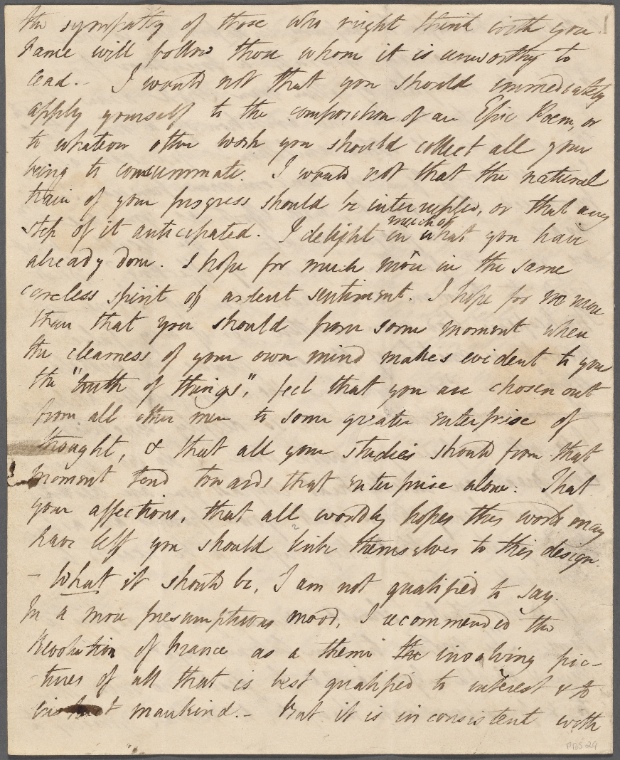 the sympathy of those who might think with you.
Fame will follow those whom it is unworthy to
lead. I would not that you should immediately
apply yourself to the composition of an Epic Poem, or
to whatever other work you should collect all your
being to consummate. I would not that the natural
train of your progress should be interrupted, or that any
step of it anticipated. I delight in much of what you have
already done. I hope for much more in the same
careless spirit of ardent sentiment. I hope for no more
than that you should from some moment when
the clearness of your own mind makes evident to you
the "truth of things", feel that you are chosen out
from all other men to some greater enterprise of
thought, & that all your studies should from that
moment tend towards that enterprise alone: That
your affections, that all worldly hopes this world may
have left you should link themselves to this design.
- What it should be, I am not qualified to say.
In a more presumptuous mood, I recommended the
Revolution of France as a theme involving pic-
-tures of all that is best qualified to interest & to
instruct mankind. - But it is inconsistent with